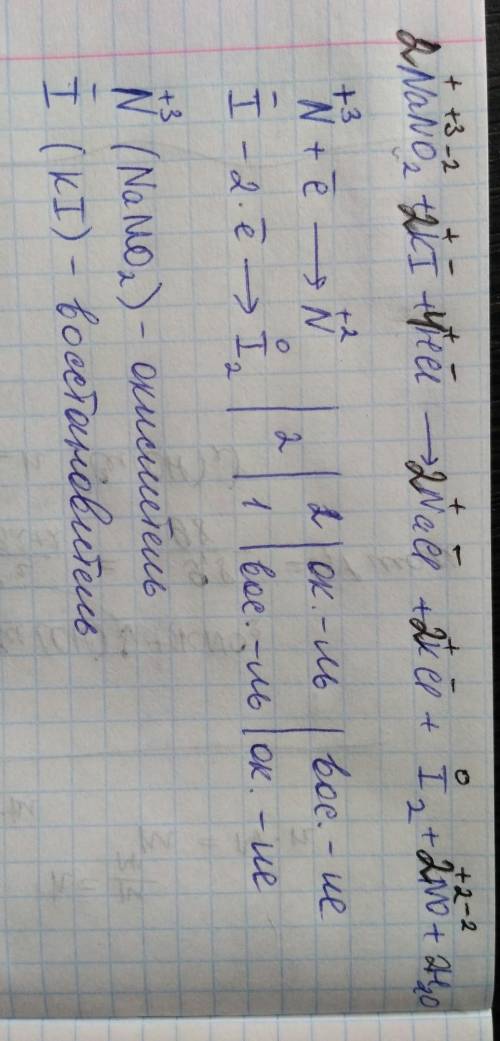 + +3 -2 + - + - + - + - 0 +2 -2
2NaNO₂ + 2KI + 4HCl → 2NaCl + 2KCl + I₂ + 2NO + 2H₂O
+3 +2
N + ē → N | | 2 | ок.-ль | вос.-ие
2
- 0
I - 2·ē → I₂ | | 1 | вос.-ль | ок.-ие
+3
N (NaNO₂) - окислитель
-
I (KI) - восстановитель